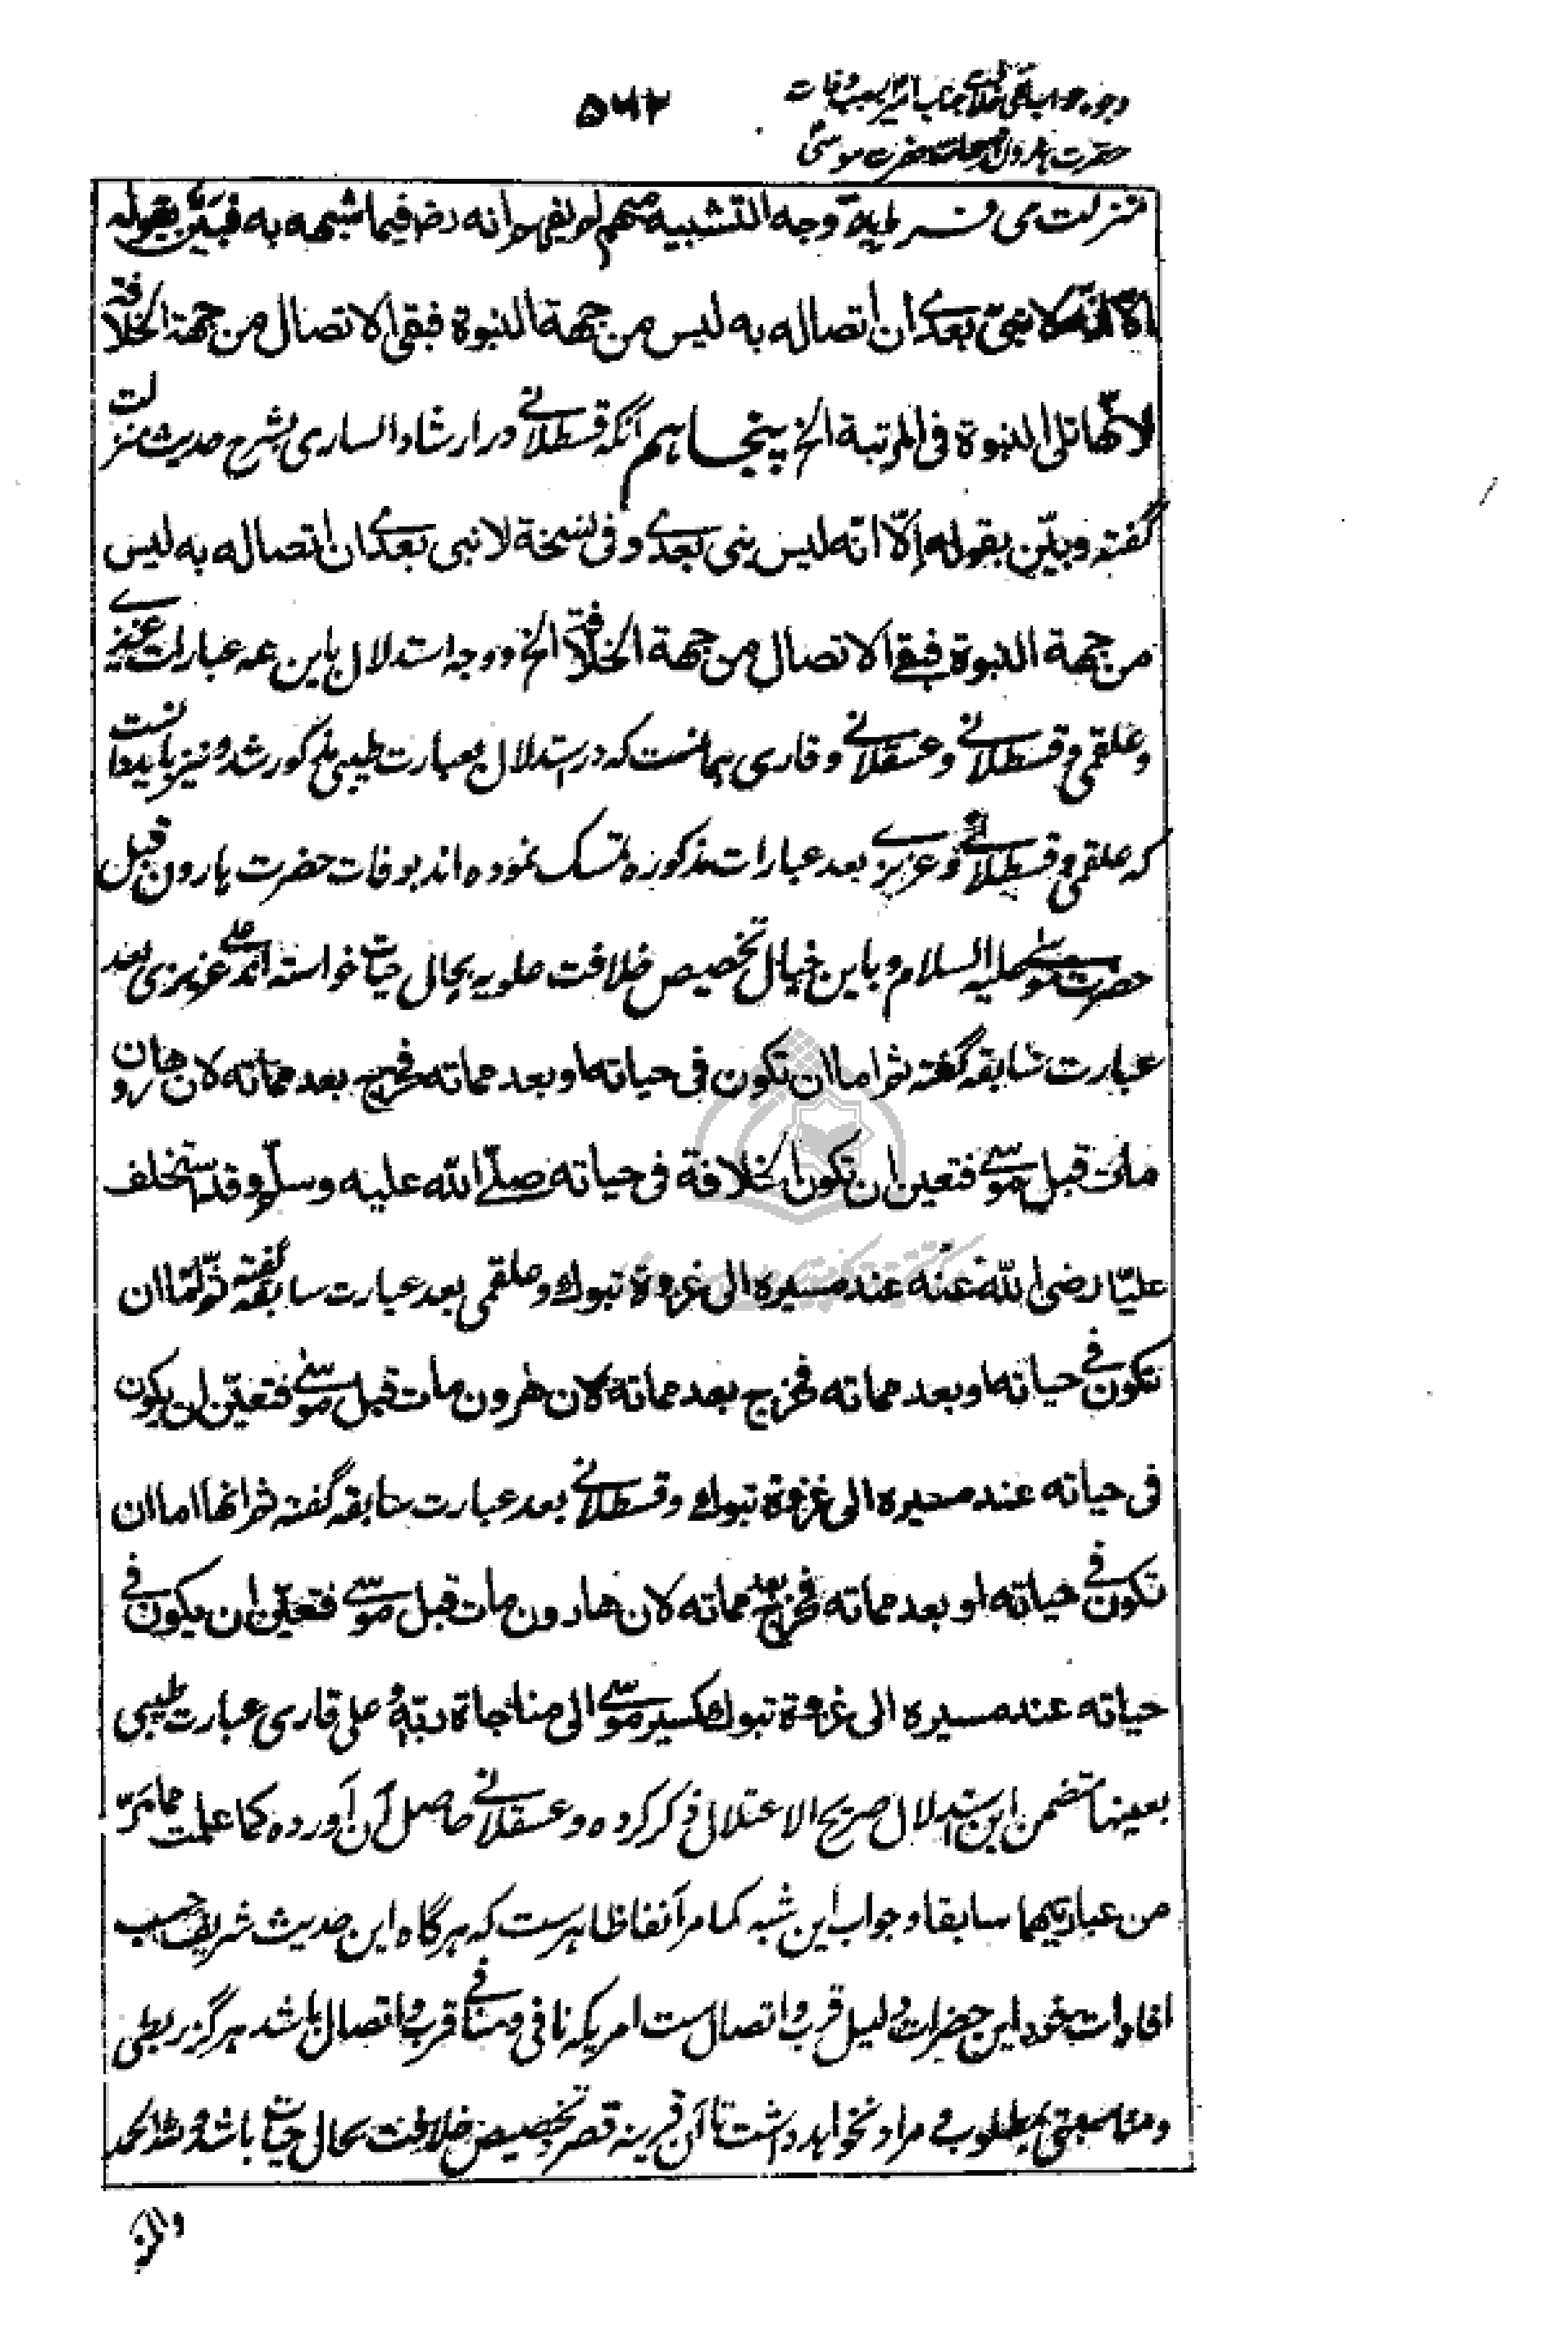 ۵۶۲
وجوه جواب نفی خلافت جناب امیر بسبب وفات
حضرت هارون در حیات حضرت موسی
منزلت می فرماید وجه التشبیه مبهم لم یفهم انه رض فیما شبهه به فبین بقوله
الا انه لا نبی بعدی ان اتصاله به لیس من جهة النبوة فبقی الاتصال من جهة الخلافة
لانّها تلی النبوة فی المرتبة الخ پنجاهم آنکه قسطلانی در ارشاد الساری بشرح حدیث منزلت
گفته وبیّن بقوله إلّا انّه لیس نبی بعدی وفی نسخة لا نبی بعدی ان اتصاله به لیس
من جهة النبوة فبقی الاتصال من جهة الخلافة الخ ووجه استدلال باین همه عبارات عزیزی
وعلقمی وقسطلانی وعسقلانی وقاری همانست که در استدلال بعبارت طیبی مذکور شد ونیز باید دانست
که علقمی وقسطلانی وعزیزی بعد عبارات مذکوره تمسک نموده اند بوفات حضرت هارون قبل
حضرت موسی علیه السلام وباین خیال تخصیص خلافت علویه بحال حیات خواسته اند عزیزی بعد
عبارت سابقه گفته ثم اما ان تکون فی حیاته او بعد مماته فخرج بعد مماته لان هارون
مات قبل موسی فتعین ان تکون الخلافة فی حیاته صلّی الله علیه وسلم وقد استخلف
علیّا رضی الله عنه عند مسیره الی غزوة تبوك وعلقمی بعد عبارت سابقه گفته ثم اما ان
تکون فی حیاته او بعد مماته فخرج بعد مماته لان هرون مات قبل موسی فتعیّن ان یکون
فی حیاته عند مسیره الی غزوة تبوك وقسطلانی بعد عبارت سابقه گفته ثم انها اما ان
تکون فی حیاته او بعد مماته فخرج بعد مماته لان هارون مات قبل موسی فتعیّن ان یکون فی
حیاته عند مسیره الی غزوة تبوك کمسیر موسی الی مناجاة ربّه و علی قاری عبارت طیبی
بعینها متضمن این استدلال صریح الاعتلال ذکر کرده وعسقلانی حاصل آن آورده کما علمت مما مرّ
من عبارتیهما سابقا وجواب این شبه کما مر آنفا ظاهرست که هرگاه این حدیث شریف حسب
افادات خود این حضرات دلیل قرب واتصال ست امریکه نافی ومنافی قرب واتصال باشد هرگز ربطی
ومناسبتی بمطلوب و مراد نخواهد داشت تا آن قرینه قصر وتخصیص خلافت بحال حیات باشد ولله الحمد